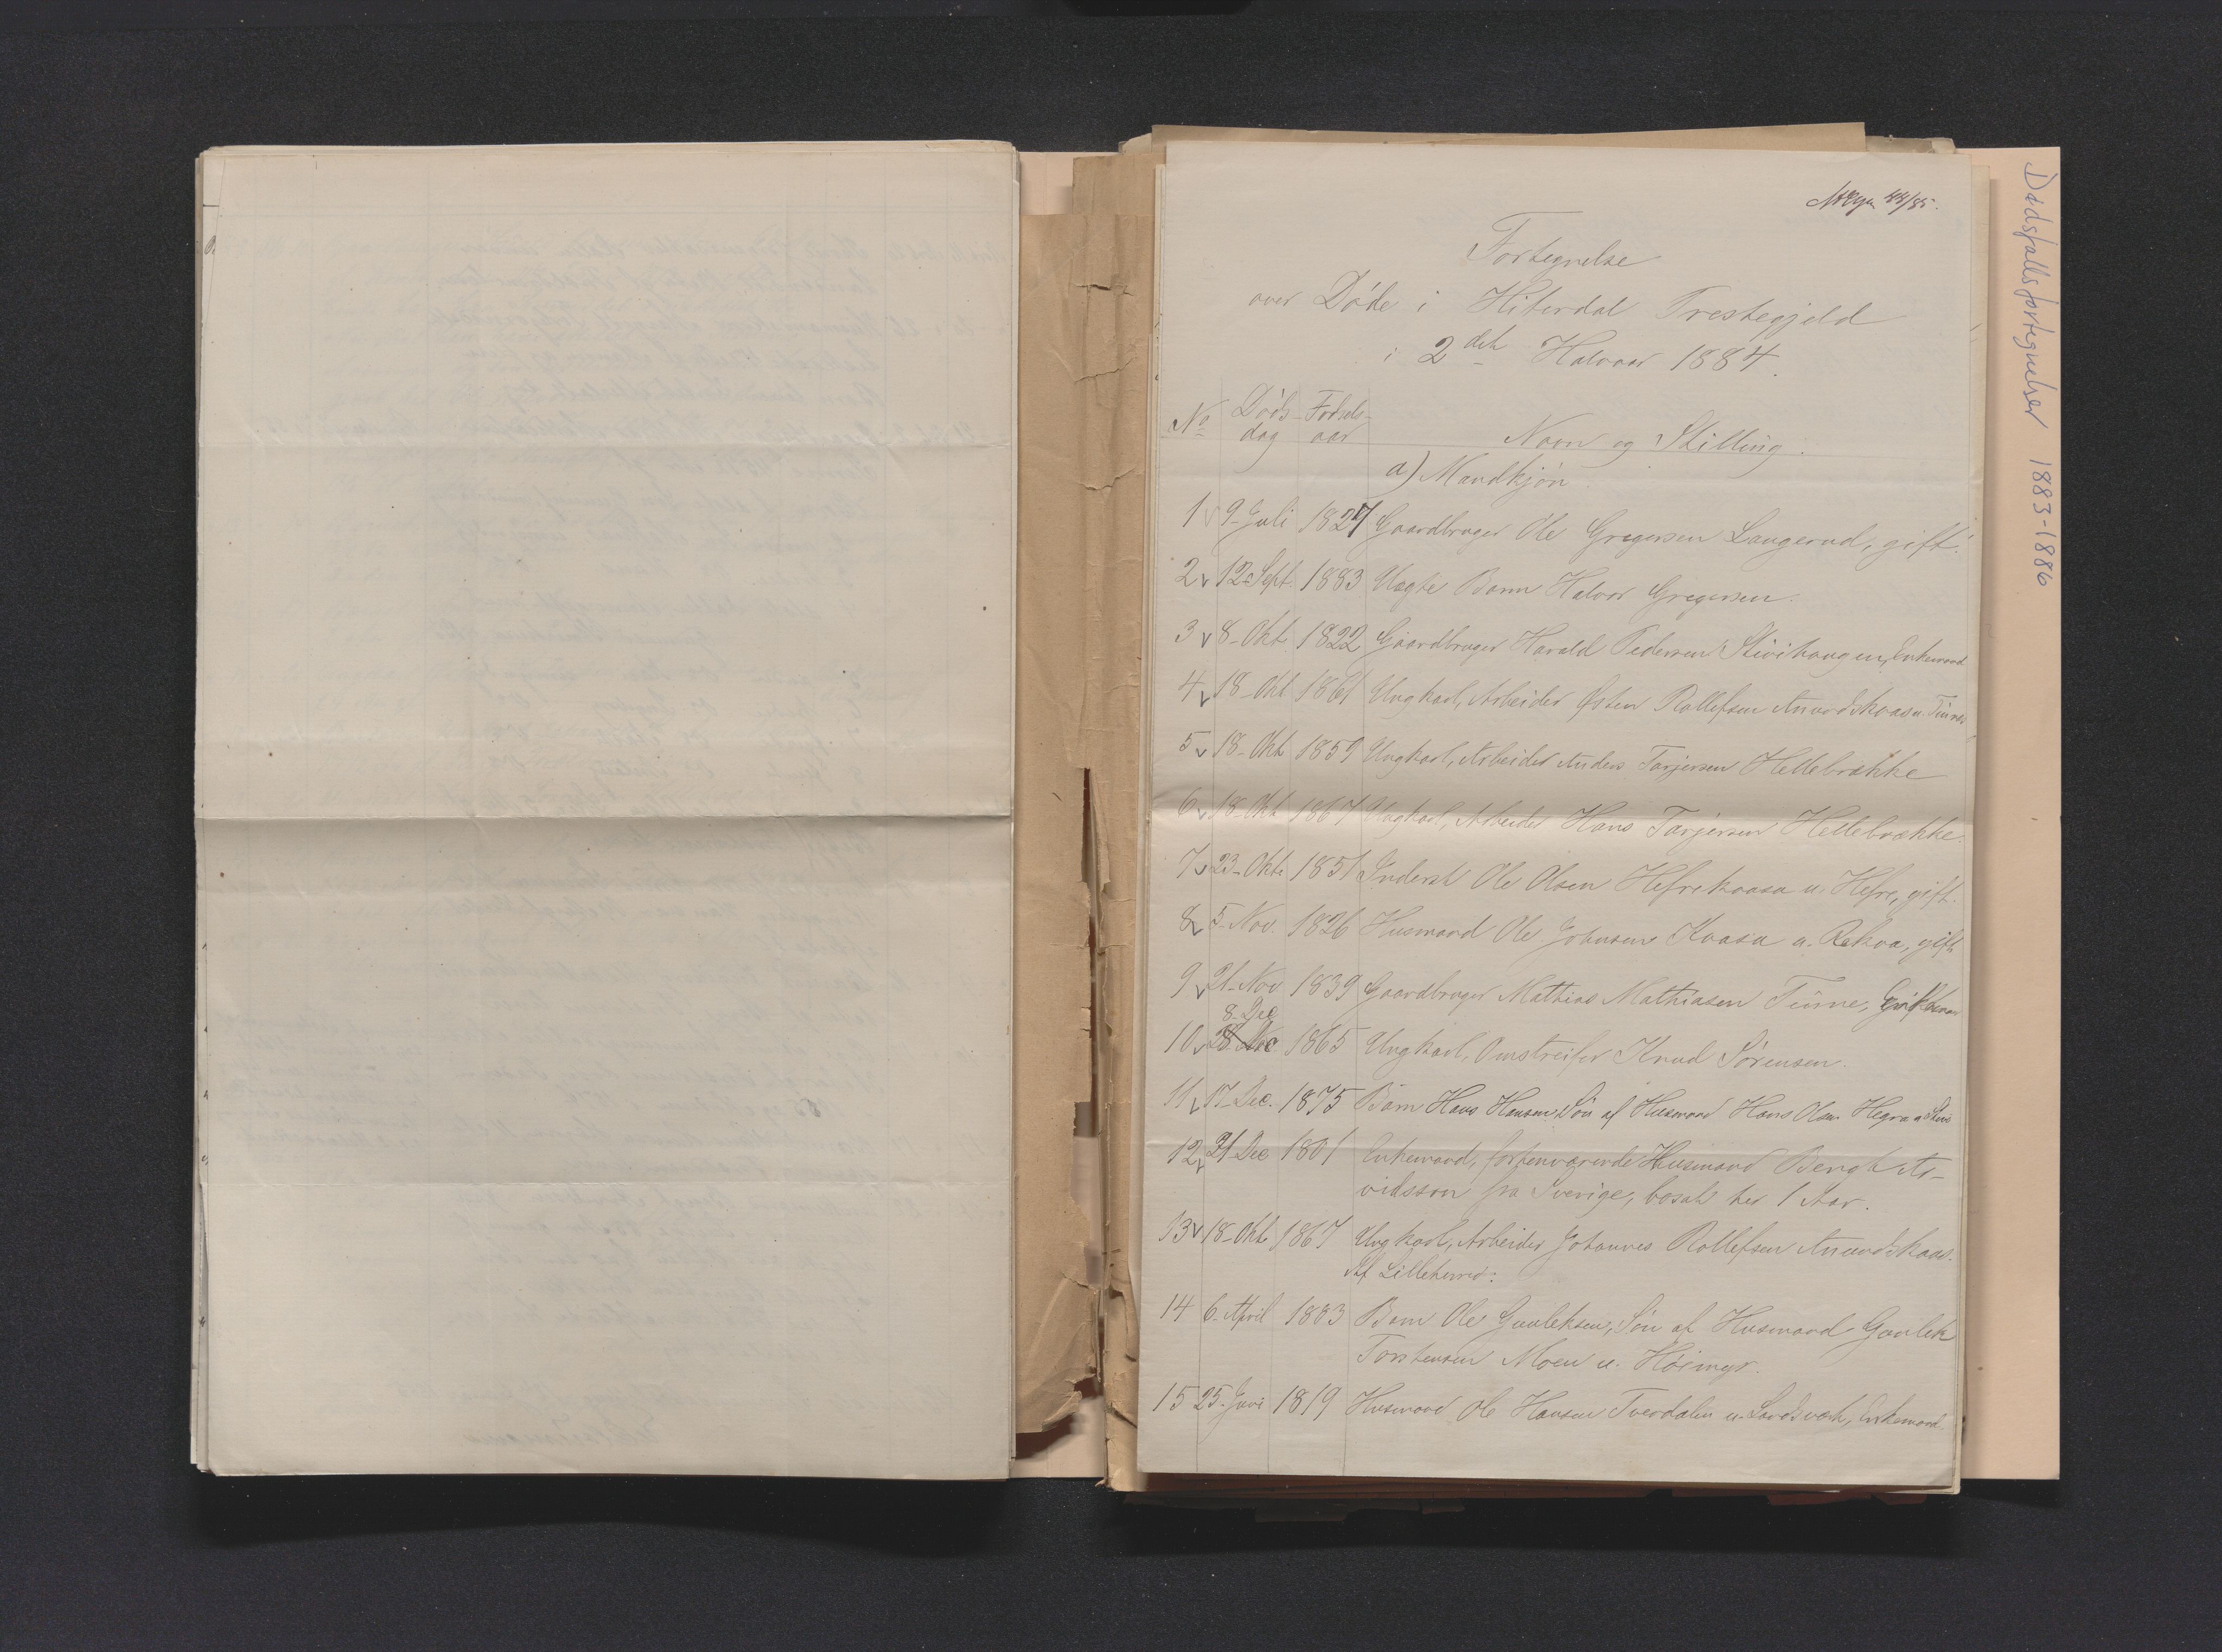 44/85.
Fortegnelse
over Døde i Hiterdal Prestegjeld
i 2det Halvaar 1884.
No Døds- dag Fødsels- aar Navn og Stilling.
a) Mandkjøn
1 9-Juli 1827 Gaardbruger Ole Gregersen Langerud, gift.
2 12-Sept. 1883 Uægte Barn Halvor Gregersen.
3 8-Okt. 1822 Gaardbruger Harald Pedersen Enkemand
4 18-Okt 1861 Ungkarl, Arbeider Østen Rollefsen Anundskaas u. Tinne
5 18-Okt 1859 Ungkarl, Arbeider Anders Tarjersen Hellebrække
6 18-Okt 1867 Ungkarl, Arbeider Hans Tarjersen Hellebrække.
7 23-Okt. 1851 Inderst Ole Olsen Hefrekaasa u. Hefre, gift.
8 5-Nov. 1826 Husmand Ole Johnsen Kaasa u. gift
9 21-Nov 1839 Gaardbruger Mathias Mathiasen Tinne,
8-Dec
10 28 Nov 1865 Ungkarl, Omstreifer Knud Sørensen.
11 17-Dec. 1875 Barn Hans Hansen, Søn af Husmand Hans Olsen
12 21 Dec 1801 Enkemand, forhenværende Husmand Bengt Ar-
vidsson fra Sverige, bosat her 1 Aar.
13 18-Okt 1867 Ungkarl, Arbeider Johannes Rollefsen Anundskaas.
Af Lilleherred:
14 6. April 1883 Barn Ole Gunleksen, Søn af Husmand Gunlek
Torstensen Moen u. Høimyr.
15 25. Juni 1819 Husmand Ole Hansen Tverdalen u. Landsverk, Enkemand.
Dødsfallsfortegnelser 1883-1886